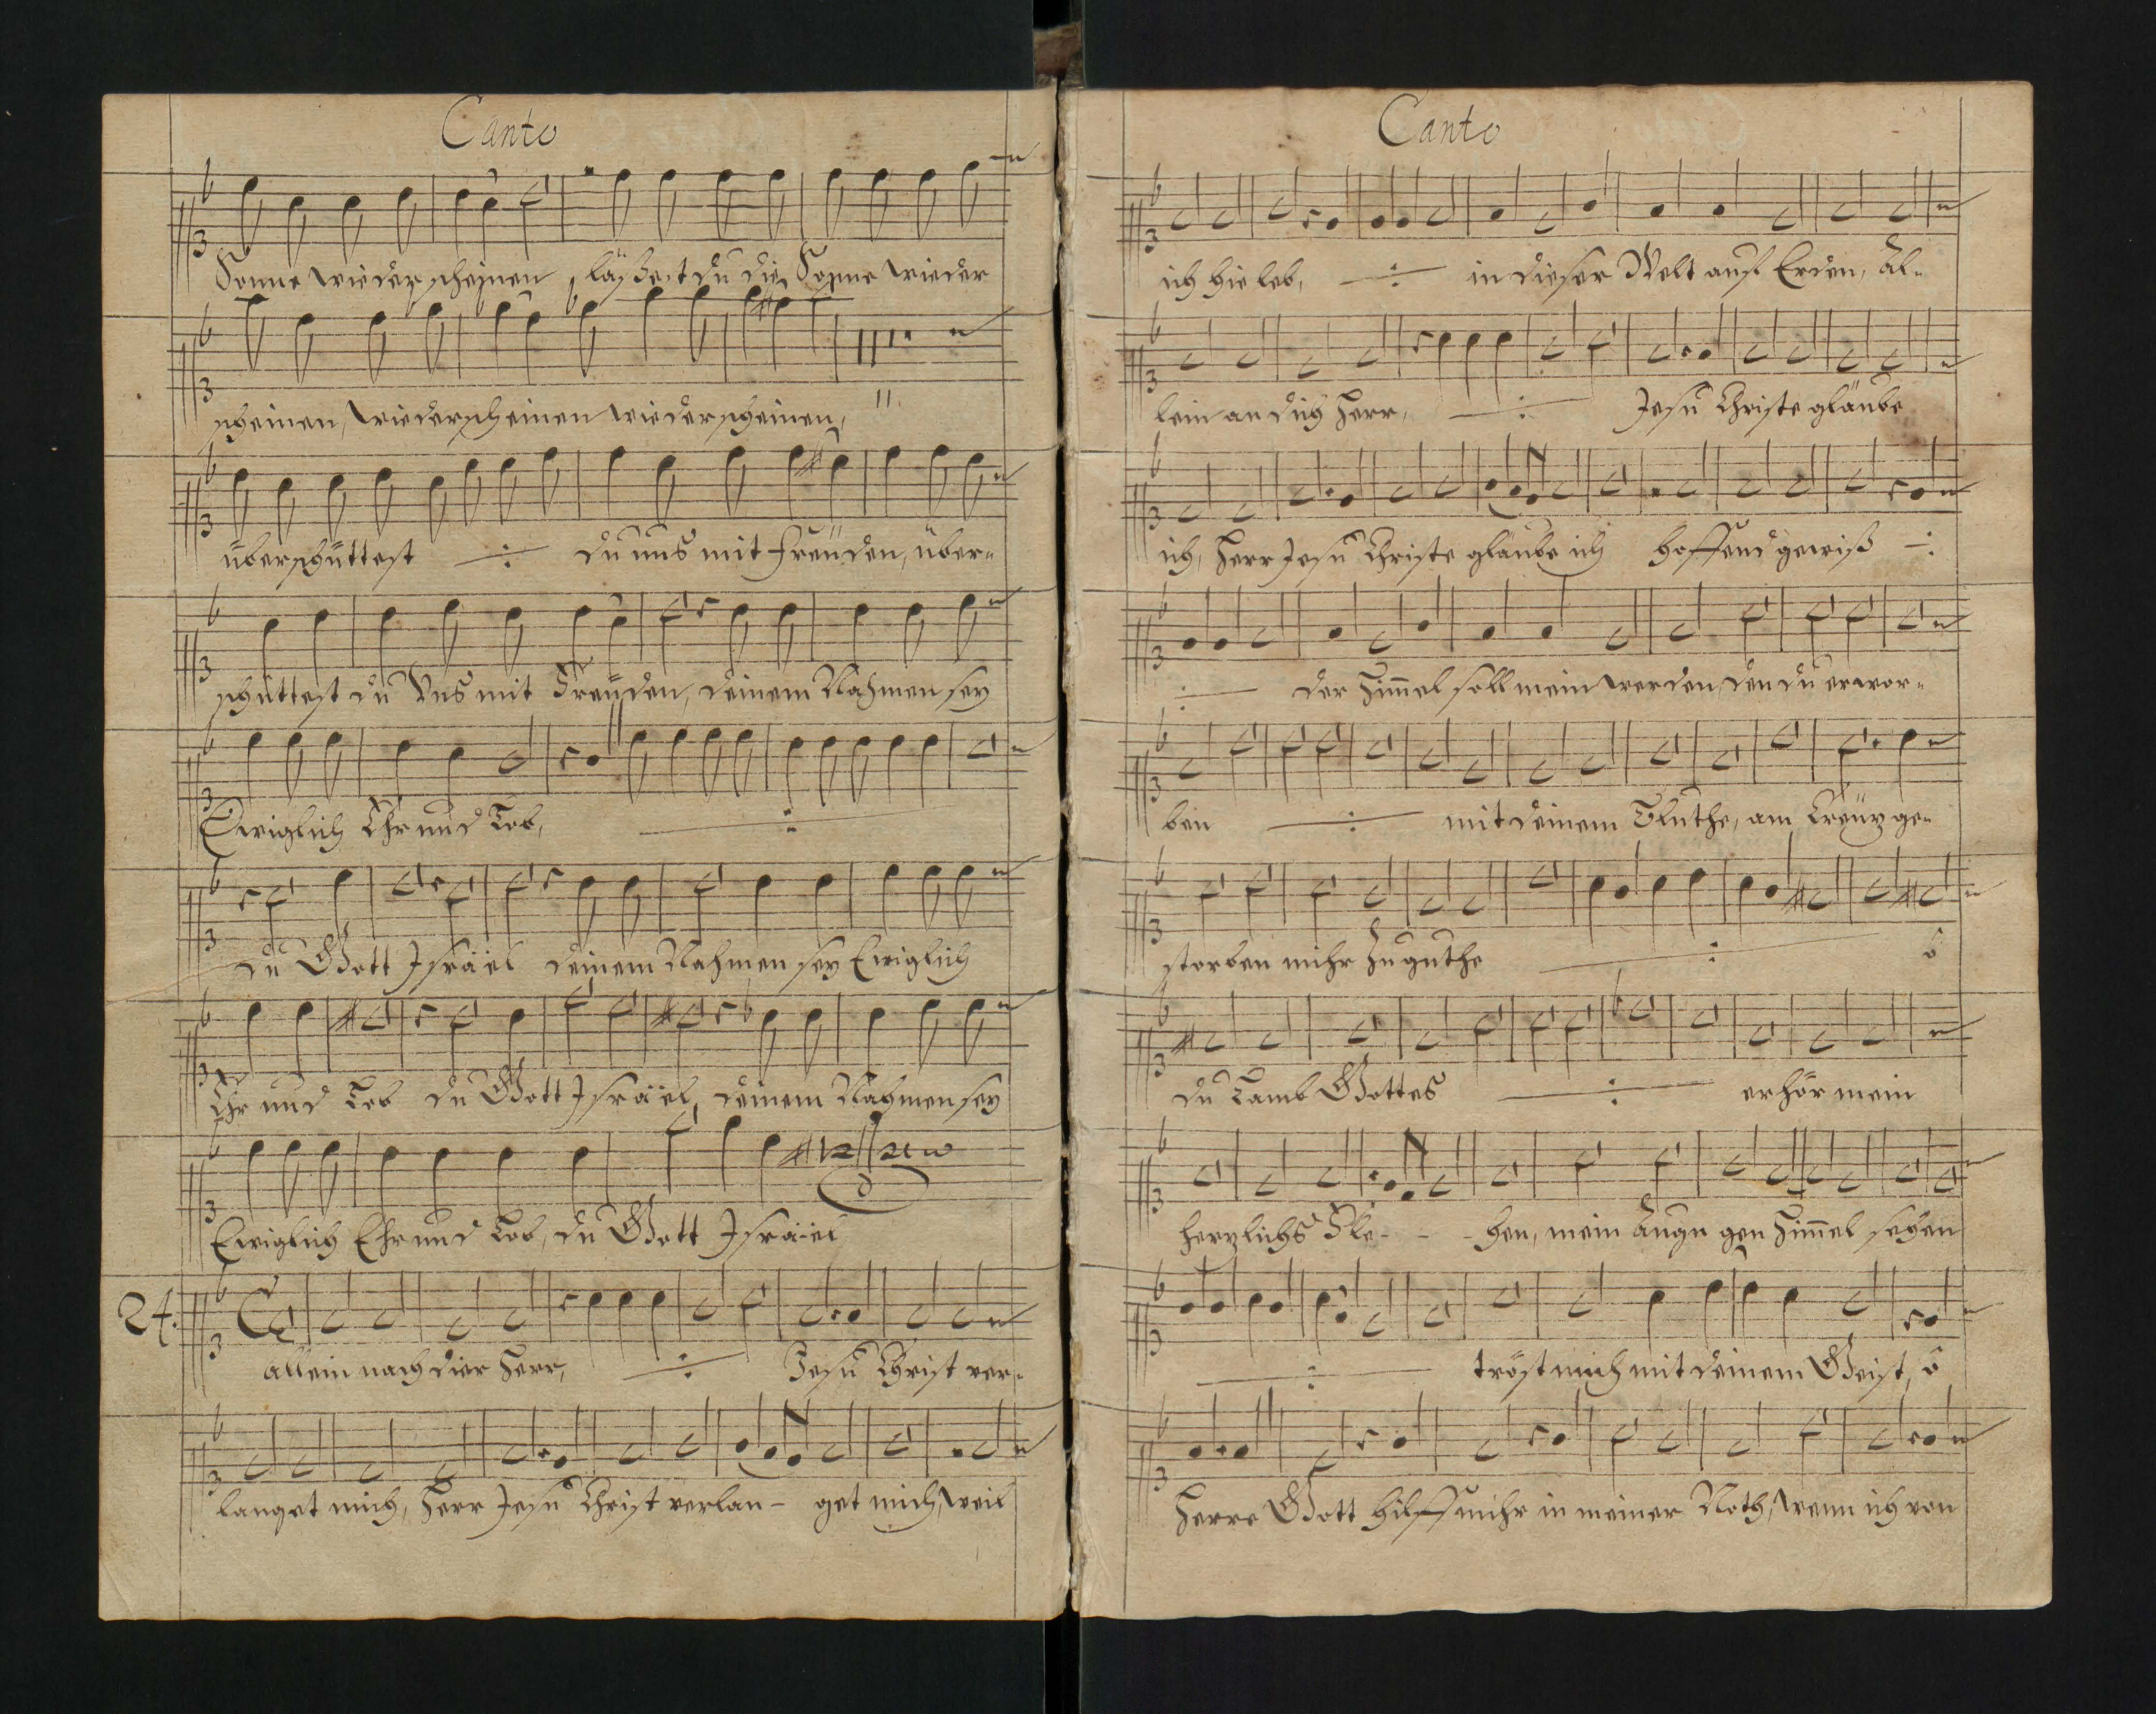 Canto
Sonne wieder scheinen, läßest du die Sonne wieder
scheinen, wiederscheinen wiederscheinen,
überschüttest ./. du uns mit freuden, über-
schüttest du Uns mit Freuden, deinem Nahmen sey
Ewiglich Ehr und Lob, ./.
du Gott Israël deinem Nahmen sey Ewiglich
Ehr und Lob du Gott Israël, deinem Nahmen sey
Ewiglich Ehr und Lob, du Gott Israël
24.
allein nach dier Herr, ./. Jesu Christ ver-
langet mich, Herr Jesu Christ verlan- get mich, weil
Canto
ich hie leb, ./. in dieser Welt auf Erden, äl-
lein an dich Herr, ./. Jesu Christe gläube
ich, Herr Jesu Christe gläube ich hoffend gewiß ./.
./. der Him̄el soll mein werden, den du erwor-
ben ./. mit deinem Bluthe, am Creütz ge-
storben mihr zu guthe ./. ô
du Lamb Gottes ./. erhör mein
hertzlichs Fle- - - hen, mein augn gen Him̄el sehen
./. tröst mich mit deinem Geist, ô
Herre Gott hilff mihr in meiner Noth, wenn ich von